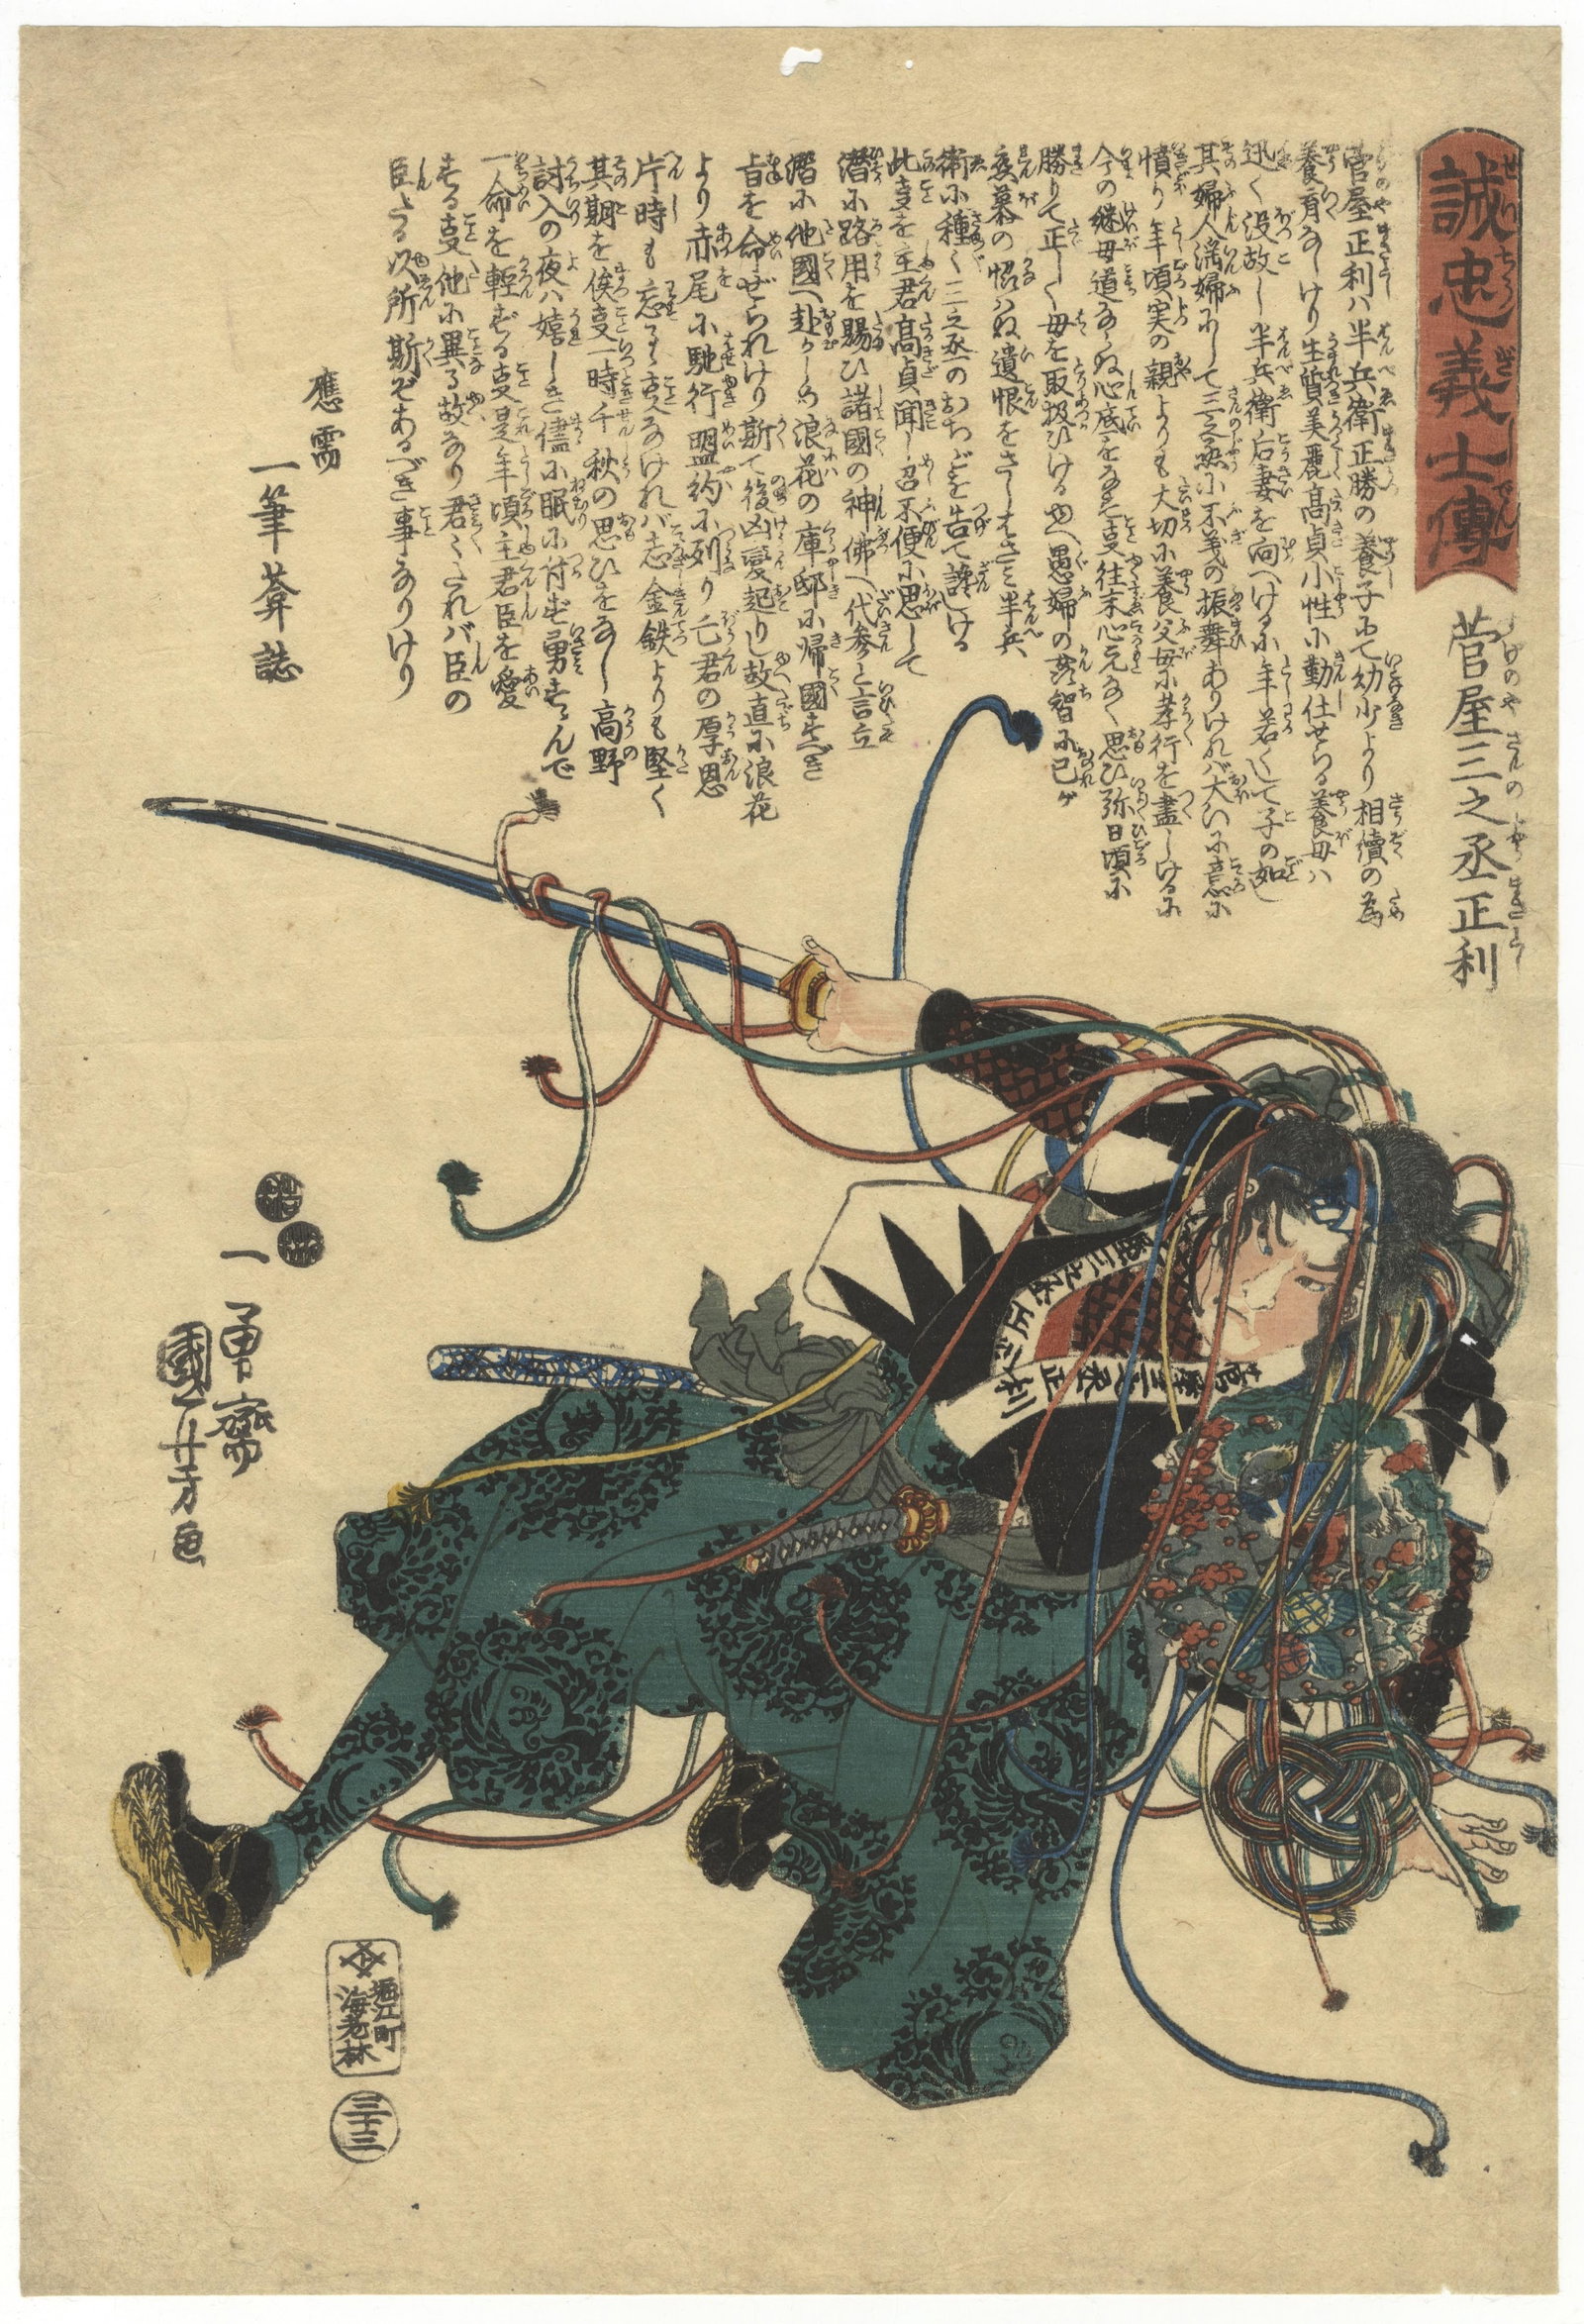 誠忠義士傳
菅屋三之丞正利
菅屋正利ハ半兵衛正勝の養子にて幼少より相續の為
養育なしけり生質美麗高貞小性に勤仕せらる養母ハ
迅く没故し半兵衛后妻を向へけるに年若くして子の如し
其婦人淫婦にして三之丞に不義の振舞ありけれバ大いに意に
憤り年頃実の親よりも大切に養父母に孝行を盡しけるに
今の継母道ならぬ心底をなす事往末心元なく思ひ弥日頃に
勝りて正しく母を取扱ひけるゆへ愚婦の智に己が
慕のハぬ遺恨をさしはさミ半兵
衛に種〻三之丞のおちどを告て讒しける
此事を主君高貞聞し召不便に思して
潜に路用を賜ひ諸國の神佛へ代参と言立
潜に他國へ赴かしめ浪花の庫邸に帰國すべき
旨を命ぜられけり斯て後凶變起りし故直に浪花
より赤尾に馳行盟約に列り亡君の厚恩
片時も忘るゝ事なけれバ志金鉄よりも堅く
其期を俟事一時千秋の思ひをなし高野
討入の夜ハ嬉しき儘に眠に付ず勇すゝんで
一命を輕ずる事是年頃主君臣を愛
する事他に異る故なり君〻たれバ臣の
臣たる以所斯ぞあるべき事なりけり
應需
一筆菴誌
菅屋三之丞正利
屋三之丞正利
一勇齋
國芳画
堀江町
海老林
三十三